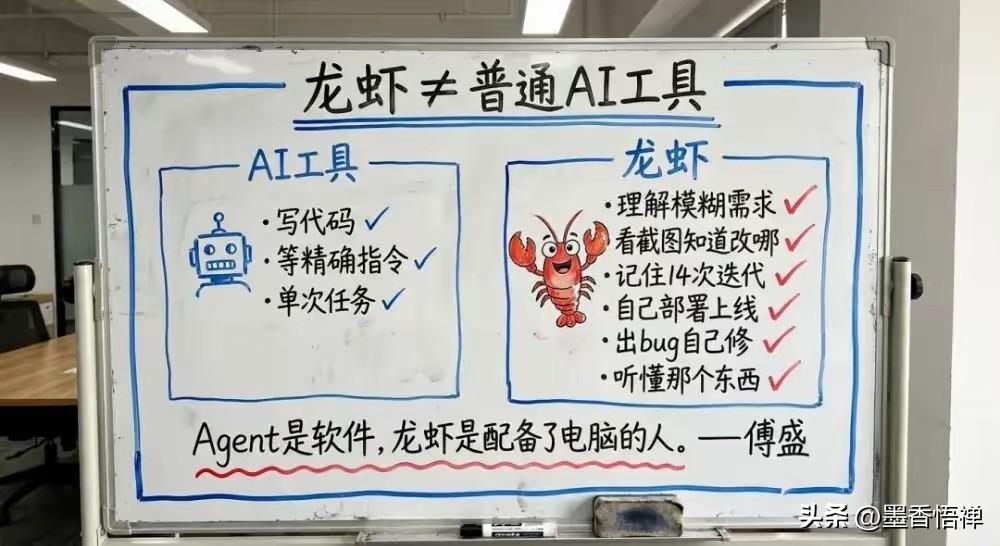 龙虾≠普通AI工具
AI工具
·写代码✓
·等精确指令✓
·单次任务✓
龙虾
·理解模糊需求✓
·看截图知道改哪✓
·记住14次迭代✓
·自己部署上线✓
·出bug自己修✓
·听懂那个东西✓
Agent是软件,龙虾是配备了电脑的人。——傅盛
头条 @墨香悟禅